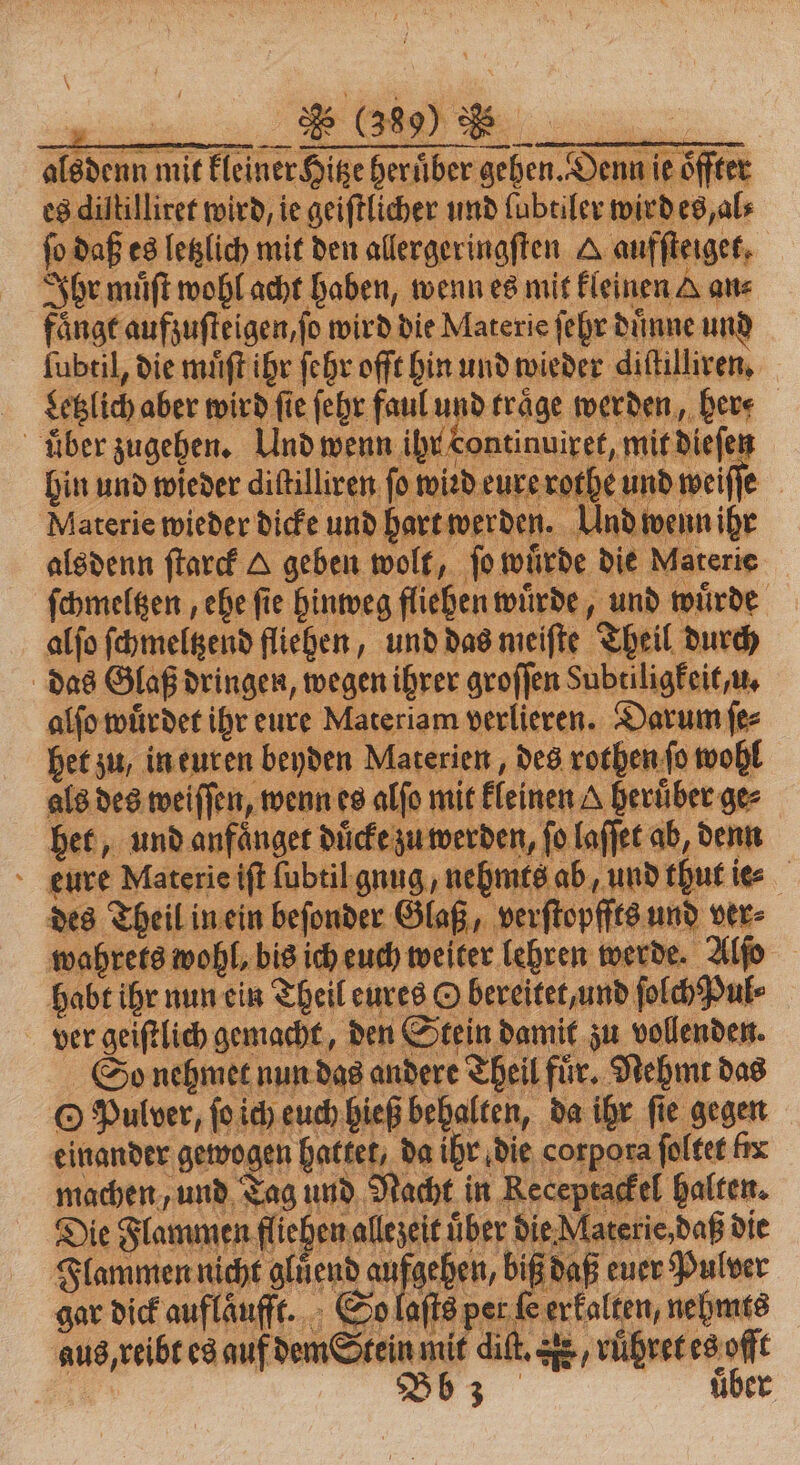 ❧ (389) ❧
alsdenn mit kleiner Hitze heruͤber gehen. Denn ie oͤffter
es diſtilliret wird, ie geiſtlicher und ſubtiler wird es, al⸗
ſo daß es letzlich mit den allergeringſten 🜂 aufſteiget.
Ihr muͤſt wohl acht haben, wenn es mit kleinen 🜂 an⸗
faͤngt aufzuſteigen, ſo wird die Materie ſehr duͤnne und
ſubtil, die muͤſt ihr ſehr offt hin und wieder diſtilliren.
Letzlich aber wird ſie ſehr faul und traͤge werden, her⸗
uͤber zugehen. Und wenn ihr continuiret, mit dieſen
hin und wieder diſtilliren ſo wird eure rothe und weiſſe
Materie wieder dicke und hart werden. Und wenn ihr
alsdenn ſtarck 🜂 geben wolt, ſo wuͤrde die Materie
ſchmeltzen, ehe ſie hinweg fliehen wuͤrde, und wuͤrde
alſo ſchmeltzend fliehen, und das meiſte Theil durch
das Glaß dringen, wegen ihrer groſſen Subtiligkeit, u.
alſo wuͤrdet ihr eure Materiam verlieren. Darum ſe⸗
het zu, in euren beyden Materien, des rothen ſo wohl
als des weiſſen, wenn es alſo mit kleinen 🜂 heruͤber ge⸗
het, und anfaͤnget duͤcke zu werden, ſo laſſet ab, denn
eure Materie iſt ſubtil gnug, nehmts ab, und thut ie⸗
des Theil in ein beſonder Glaß, verſtopffts und ver⸗
wahrets wohl, bis ich euch weiter lehren werde. Alſo
habt ihr nun ein Theil eures ☉ bereitet, und ſolch Pul⸗
ver geiſtlich gemacht, den Stein damit zu vollenden.
So nehmet nun das andere Theil fuͤr. Nehmt das
☉ Pulver, ſo ich euch hieß behalten, da ihr ſie gegen
einander gewogen hattet, da ihr die corpora ſoltet fix
machen, und Tag und Nacht in Receptackel halten.
Die Flammen fliehen allezeit uͤber die Materie, daß die
Flammen nicht gluͤend aufgehen, biß daß euer Pulver
gar dick auflaͤufft. So laſts per ſe erkalten, nehmts
aus, reibt es auf dem Stein mit diſt. 🜊, ruͤhret es offt
Bb 3 uͤber